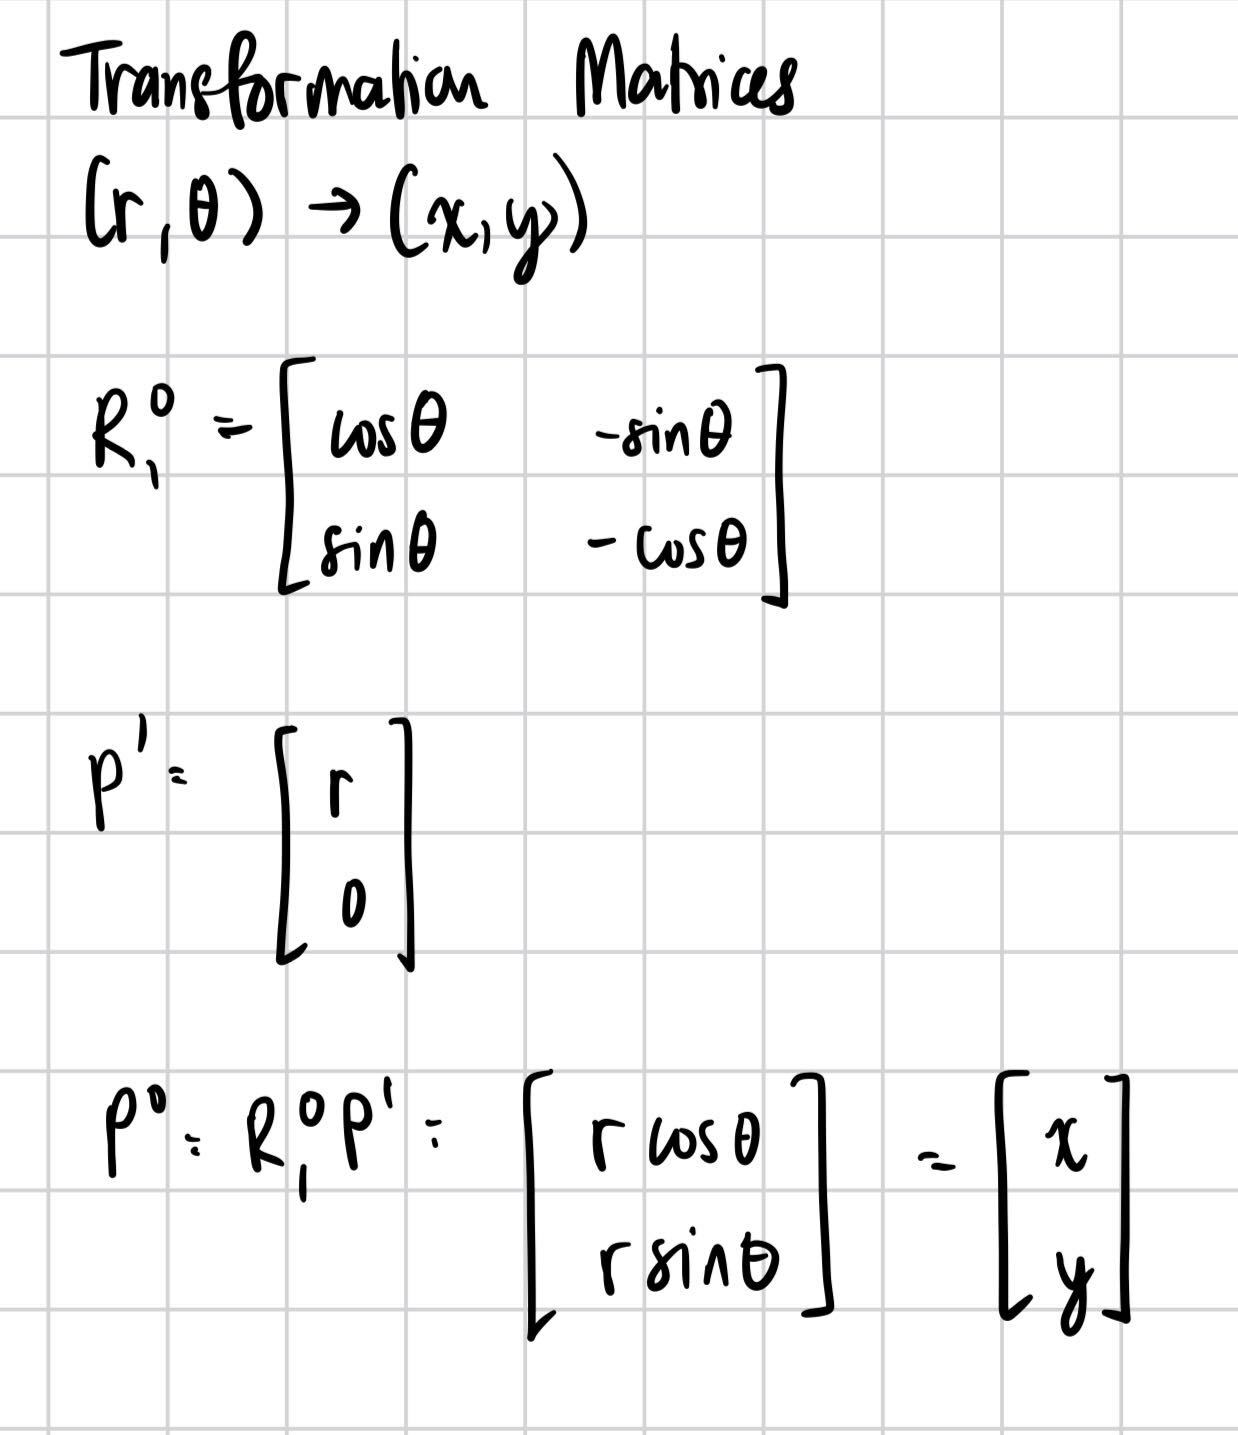 Transformation Matrices
(r, θ) → (x, y)
R₁⁰ = [ cosθ -sinθ
sinθ -cosθ ]
p¹ = [ r
0 ]
p⁰ = R₁⁰ p¹ = [ r cosθ
r sinθ ] = [ x
y ]